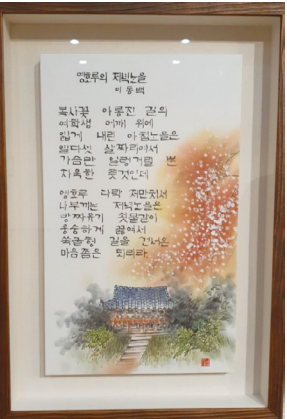 영호루의 저녁노을
이동백
복사꽃 아롱진 길의
여학생 어깨 위에
엷게 내린 아침노을은
열다섯 살짜리에서
가슴만 일렁거릴 뿐
차라한 풋것인데
영호루 다락 저만치서
나부끼는 저녁노을은
방짜유기 쇳물같이
웅숭하게 끓여서
쑥굴헝 길을 건너온
마음쯤은 되리라